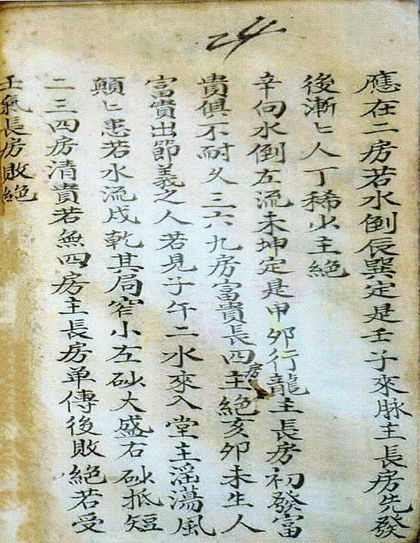 24
應在二房若水倒辰巽定是壬子來脉主長房先發
後漸匕人丁稀少主絕
辛向水倒左流未坤定是甲夘行龍主長房初發富
貴俱不耐久三六九房富貴長四房主絕亥夘未生人
富貴出節義之人若見子午二水來入堂主淫蕩風
顛匕患若水流戍乾其局窄小左砂大盛右砂抵短
二三四房清貴若無四房主長房单傳後敗絕若受
壬氣長房敗絕